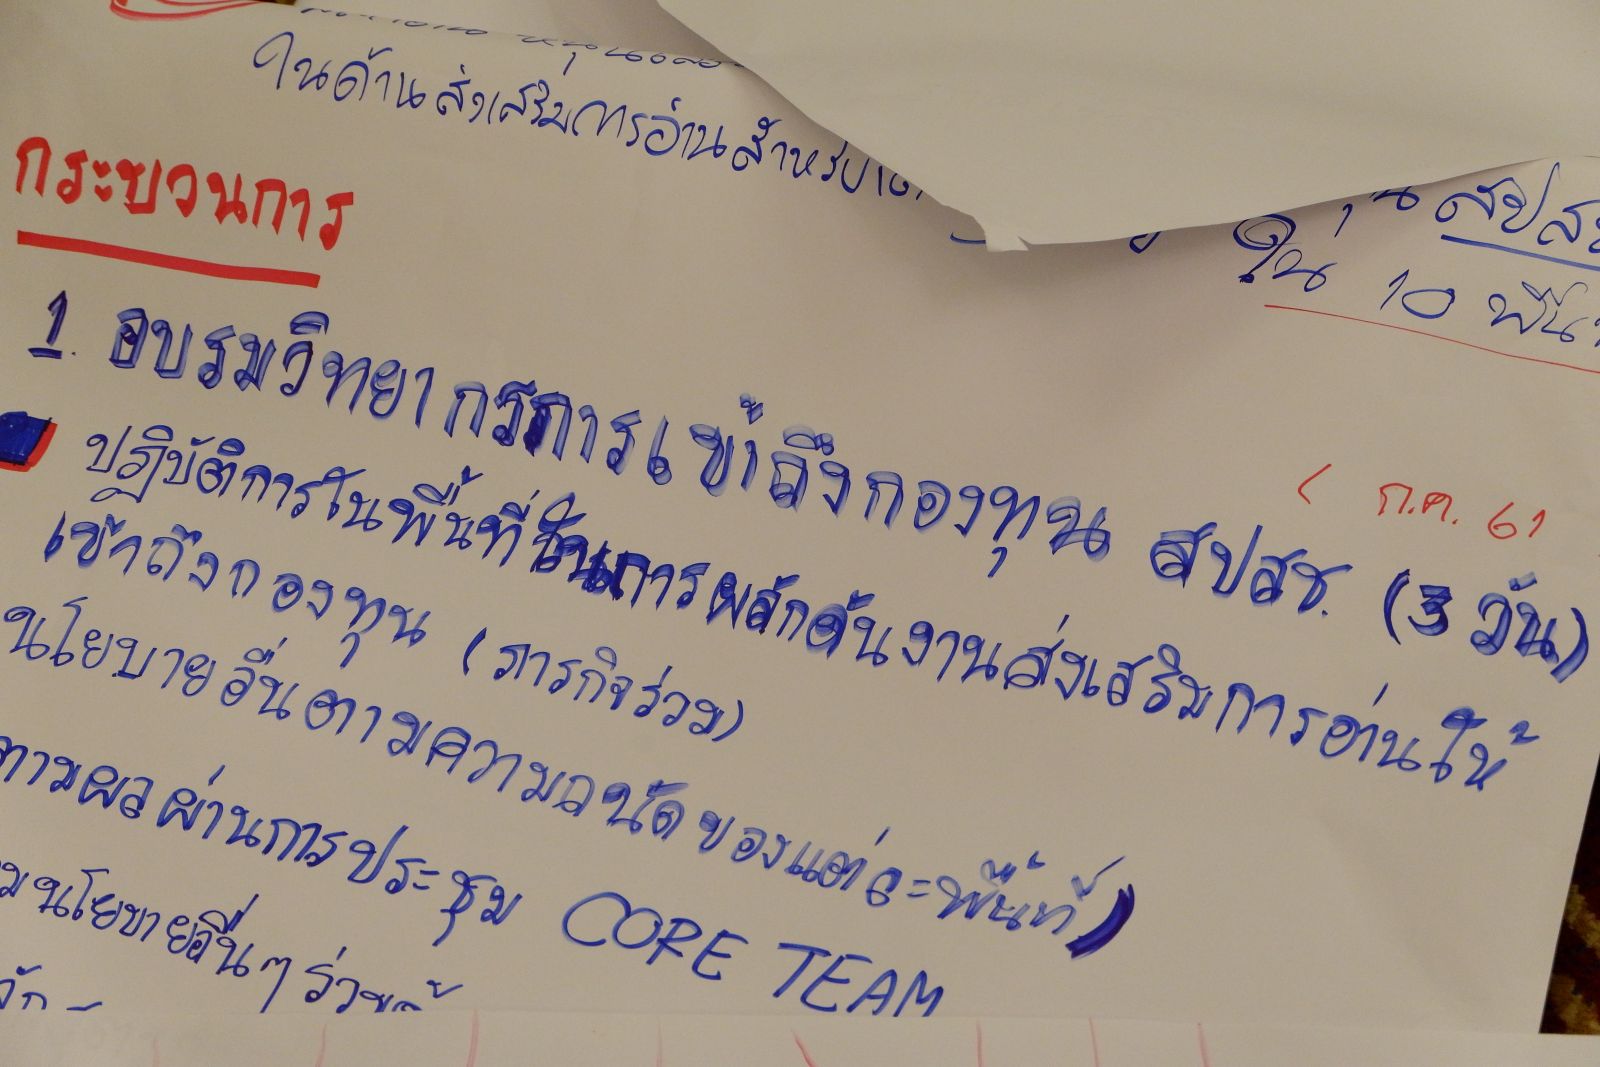 ในด้านส่งเสริมการอ่านสำหรับ
สปสช
ใน 10 พื้น
กระบวนการ
1. อบรมวิทยากรการเข้าถึงกองทุน สปสช. (3 วัน)
( ก.ค. 61
ปฏิบัติการในพื้นที่ ในการผลักดันงานส่งเสริมการอ่านให้
เข้าถึงกองทุน (ภารกิจร่วม)
นโยบายอื่นตามความถนัดของแต่ละพื้นที่)
ตามผลผ่านการประชุม CORE TEAM
นโยบายอื่นๆ ร่วมด้วย